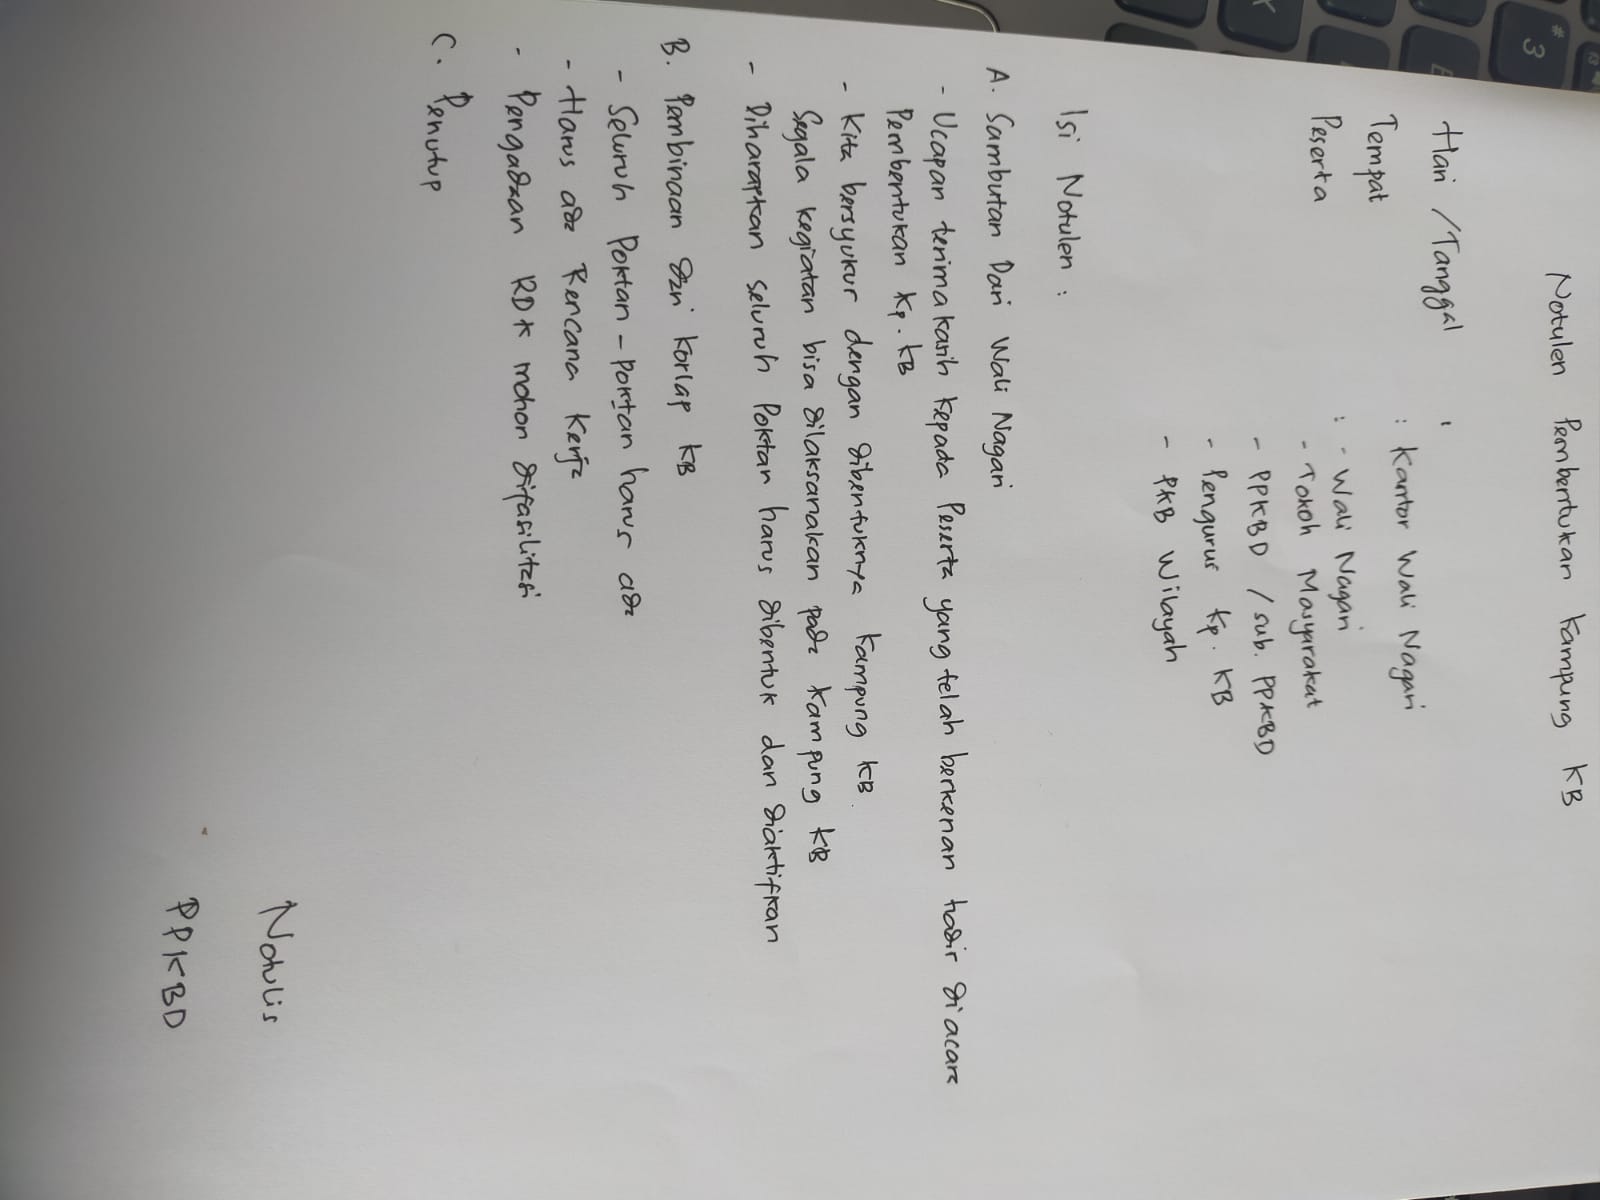 Notulen Pembentukan Kampung KB
Hari / Tanggal :
Tempat : Kantor Wali Nagari
Peserta : - Wali Nagari
- Tokoh Masyarakat
- PPKBD / sub. PPKBD
- Pengurus Kp. KB
- PKB Wilayah
Isi Notulen :
A. Sambutan Dari Wali Nagari
- Ucapan terima kasih kepada Peserta yang telah berkenan hadir di acara
Pembentukan Kp. KB
- Kita bersyukur dengan dibentuknya Kampung KB.
Segala kegiatan bisa dilaksanakan pada Kampung KB
- Diharapkan seluruh Poktan harus dibentuk dan diaktifkan
B. Pembinaan dari Korlap KB
- Seluruh Poktan-poktan harus ada
- Harus ada Rencana Kerja
- Pengadaan RDK mohon difasilitasi
C. Penutup
Notulis
PPKBD
# 3